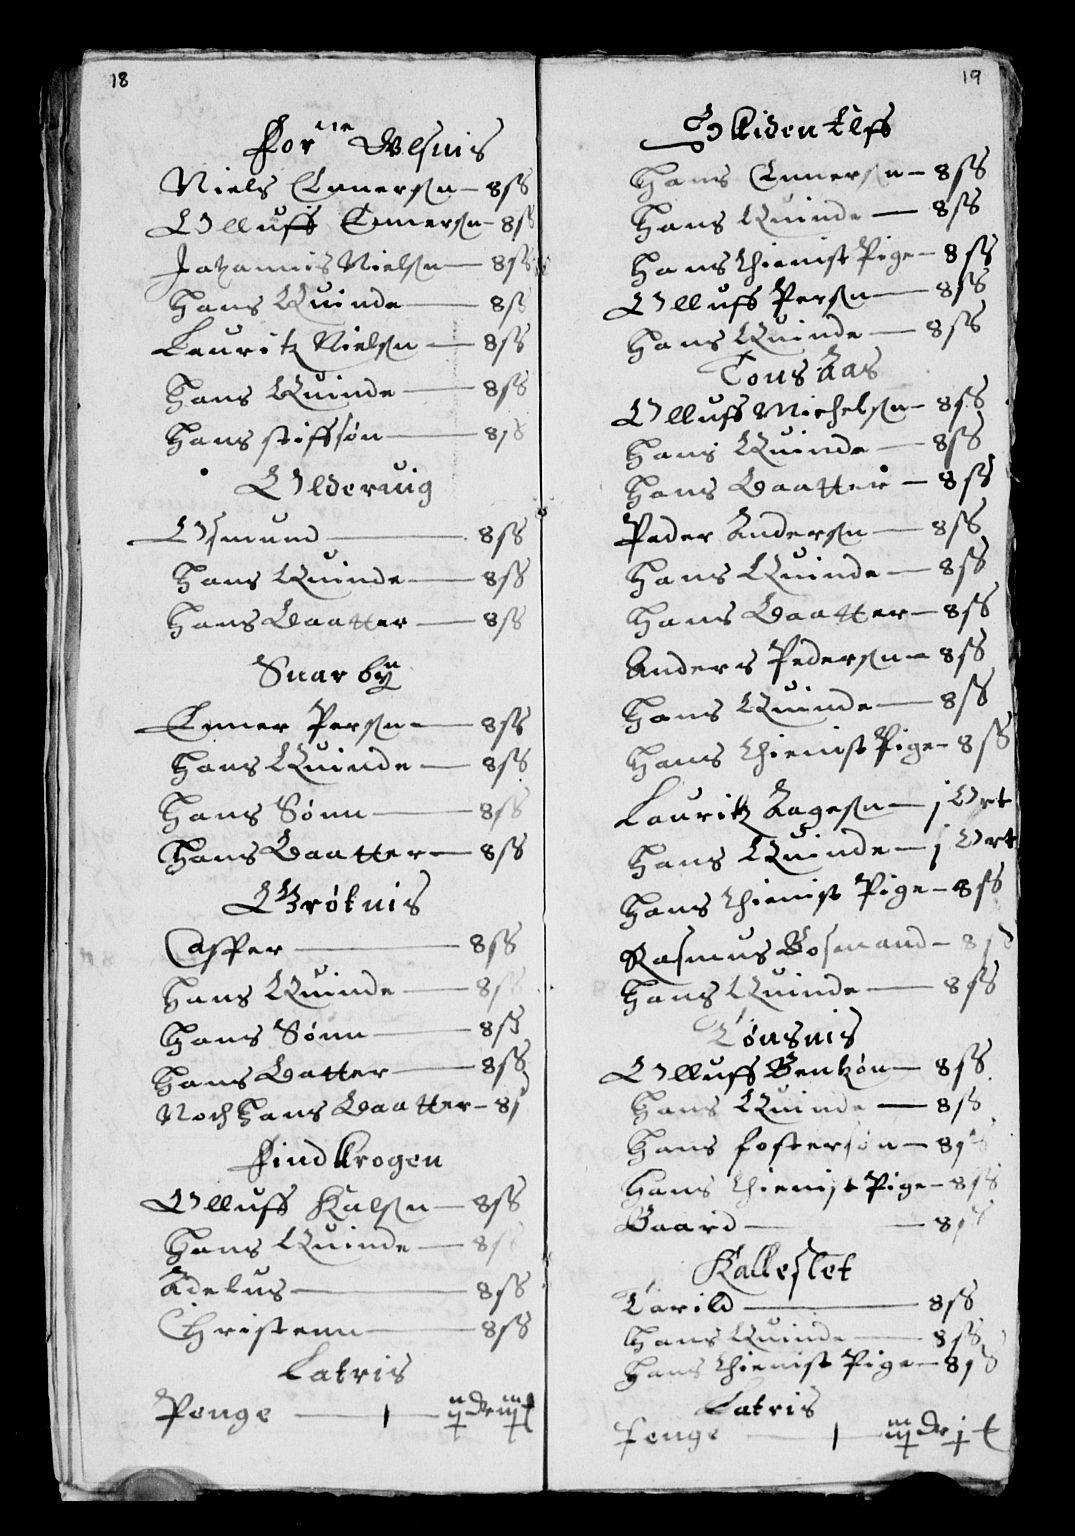 18
for ne Velsnis
Niels Ennersn — 8 sß
Olluff Ennersn — 8 sß
Johannis Nielsn — 8 sß
Hans Quinde — 8 sß
Lauritz Nielsn — 8 sß
Hans Quinde — 8 sß
Hans stiffsøn — 8 sß
Olderuig
Osmund — 8 sß
Hans Quinde — 8 sß
Hans Daatter — 8 sß
Snarbyn
Enner Persn — 8 sß
Hans Quinde — 8 sß
Hans Sønn — 8 sß
Hans Daatter — 8 sß
Grøtnis
Casper — 8 sß
Hans Quinde — 8 sß
Hans Sønn — 8 sß
Hans Datter — 8 sß
Noch Hans Daatter — 8 s
Findkrogen
Olluff Kalsn — 8 sß
Hans Quinde — 8 sß
Adelus — 8 sß
Christenn — 8 sß
Latris
Penge
19
Skidenelff
Hans Ennersn — 8 sß
Hans Quinde — 8 sß
Hans thienist Pige — 8 sß
Olluff Persn — 8 sß
Hans Quinde — 8 sß
Tonsaas
Olluff Michelsn — 8 sß
Hans Quinde — 8 sß
Hans Daatter — 8 sß
Peder Andersn — 8 sß
Hans Quinde — 8 sß
Hans Daatter — 8 sß
Anders Pedersn — 8 sß
Hans Quinde — 8 sß
Hans thienist Pige — 8 sß
Lauritz Aagesn — j Ort
Hans Quinde — j Ort
Hans thienist Pige — 8 sß
Rasmus Bosmand — 8 sß
Hans Quinde — 8 sß
Tønsnis
Olluff Bentzøn — 8 sß
Hans Quinde — 8 sß
Hans fostersøn — 8 sß
Hans thienist Pige — 8 sß
Baard — 8 sß
Kalleslet
Tarild — 8 sß
Hans Quinde — 8 sß
Hans thienist Pige — 8 sß
Latris
Penge